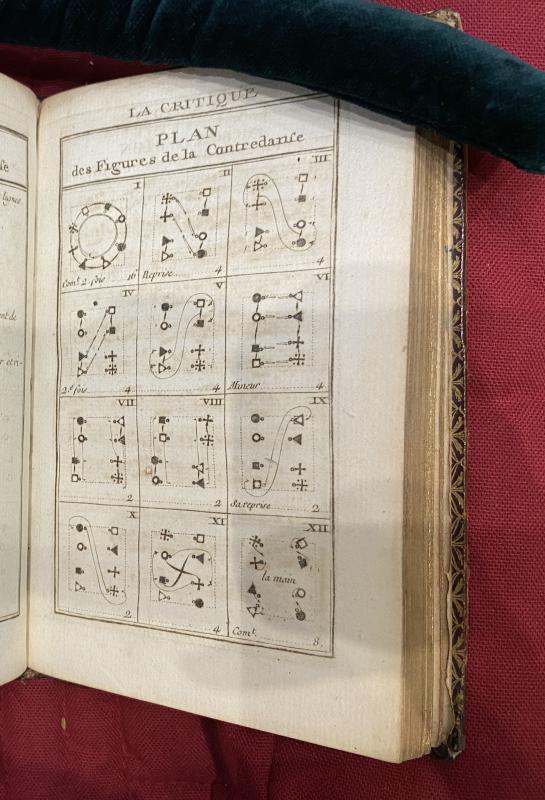 LA CRITIQUE
PLAN
des Figures de la Contredanse
I
II
III
Com.t 2 fois 16
Reprise 4
4
IV
V
VI
2.e fois 4
4
Mineur 4
VII
VIII
IX
2
2
Sa reprise 2
X
XI
XII
la main
2
4
Com.t 8
lignes